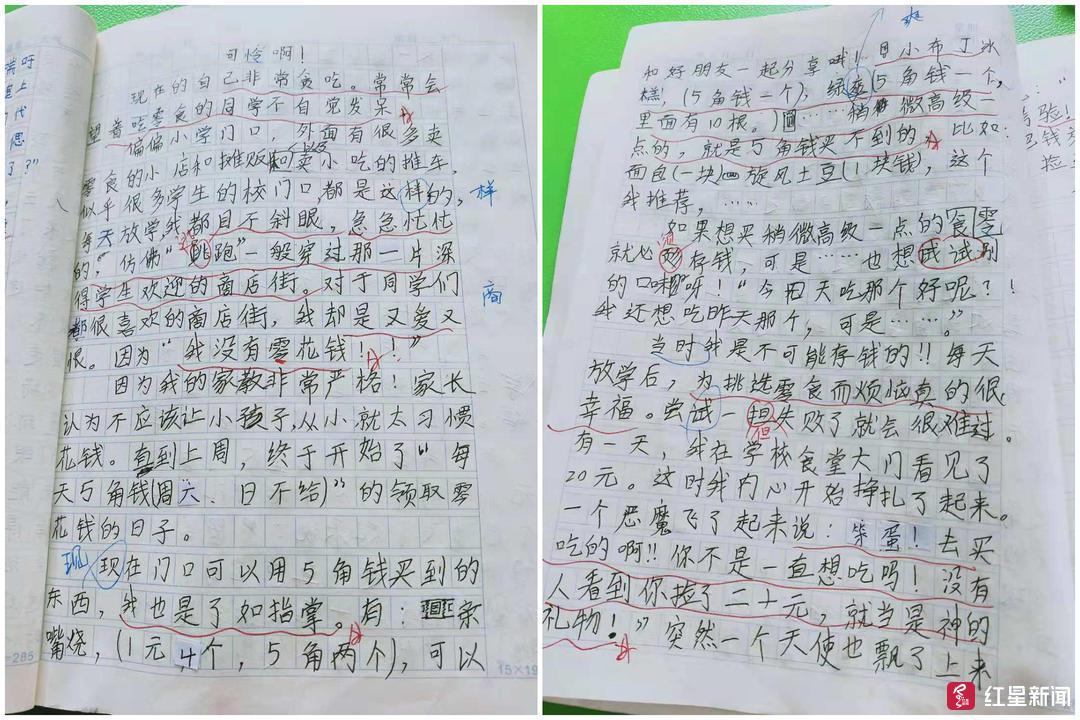 可怜啊！
现在的自己非常贪吃。常常会
望着吃零食的同学不自觉发呆
偏偏小学门口，外面有很多卖
零食的小店和摊贩和以及卖小吃的推车，
似乎很多学生的校门口，都是这样的，
样
每天放学，我都目不斜眼，急急忙忙
的，仿佛“跳跑”一般穿过那一片深
得学生欢迎的商店街。对于同学们
商
都很喜欢的商店街，我却是又爱又
恨。因为“我没有零花钱！！”
因为我的家教非常严格！家长
认为不应该让小孩子，从小就太习惯
花钱。直到上周，终于开始了“每
天5角钱(周六、日不给)”的领取零
花钱的日子。
现
现在门口可以用5角钱买到的
东西，我也是了如指掌。有：条
嘴烧，(1元4个，5角两个)，可以
15×19
-285
爽
和好朋友一起分享哦！小布丁冰
糕，(5角钱一个)，绿爽(5角钱一个，
里面有10根。)……稍微高级一
点的，就是5角钱买不到的。比如：
面包(一块)旋风土豆(1块钱)，这个
我推荐，……
如果想买稍微高级一点的食零
就必存钱，可是……也想试试别
的口味呀！“今天吃那个好呢？！
我还想吃昨天那个，可是……。”
当时我是不可能存钱的!!每天
放学后，为挑选零食而烦恼真的很
幸福。尝试一担但失败了就会很难过。
有一天，我在学校食堂大门看见了
20元。这时我内心开始挣扎了起来。
一个恶魔飞了起来说：笨蛋！去买
吃的啊!!你不是一直想吃吗！没有
人看到你捡了二十元，就当是神的
礼物！”突然一个天使也飘了上来
红星新闻